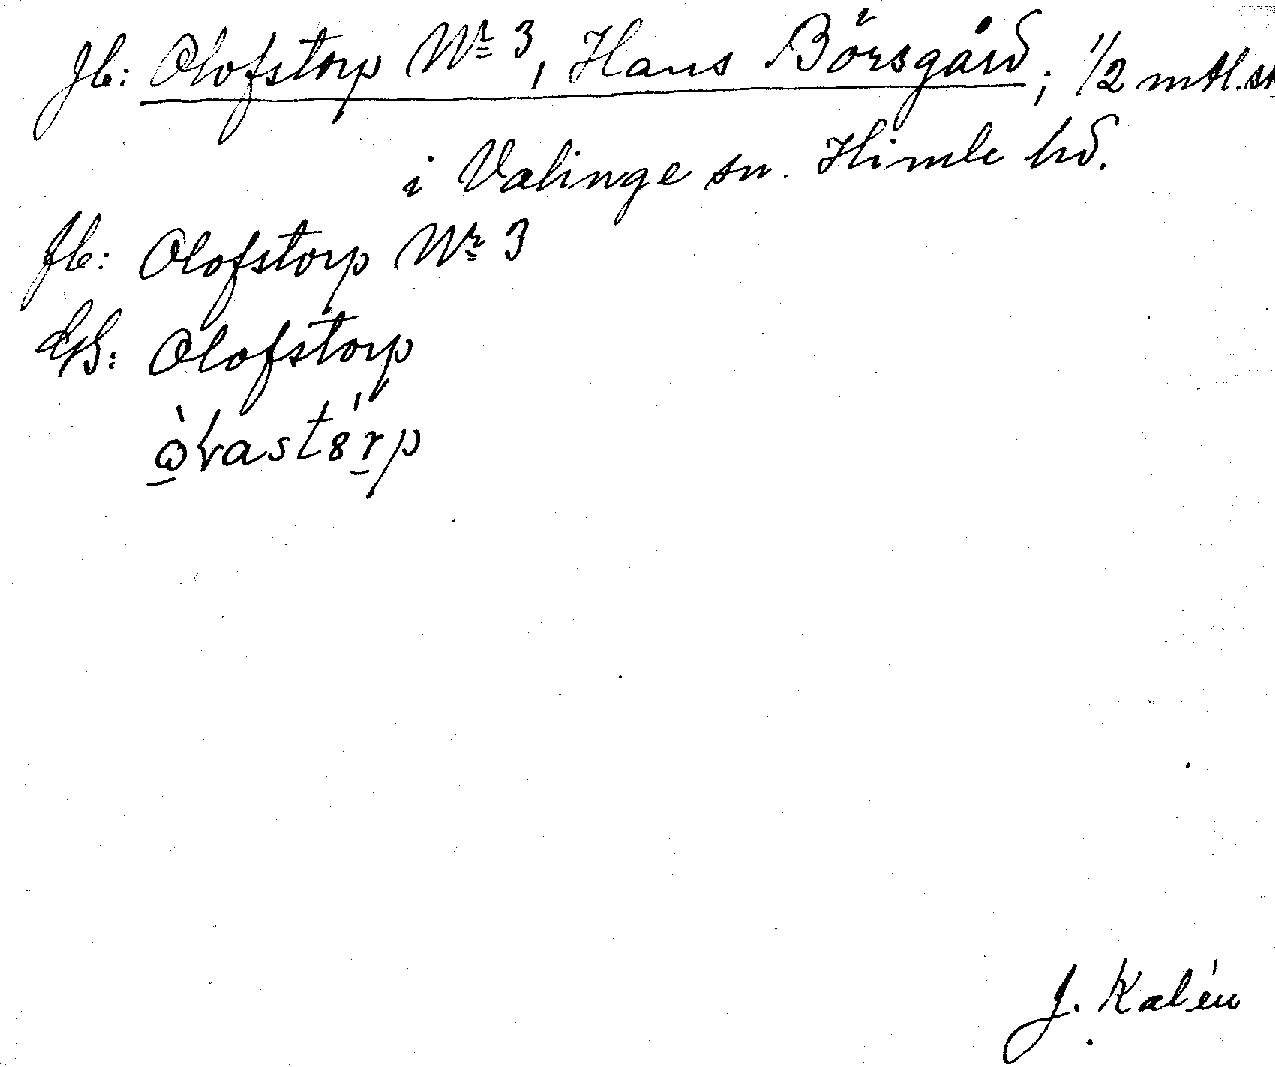 Jb: Olofstorp Nr 3, Hans Börsgård; 1/2 mtl.sk
i Valinge sn. Himle hd.
Jb: Olofstorp Nr 3
GS: Olofstorp
J. Kalén